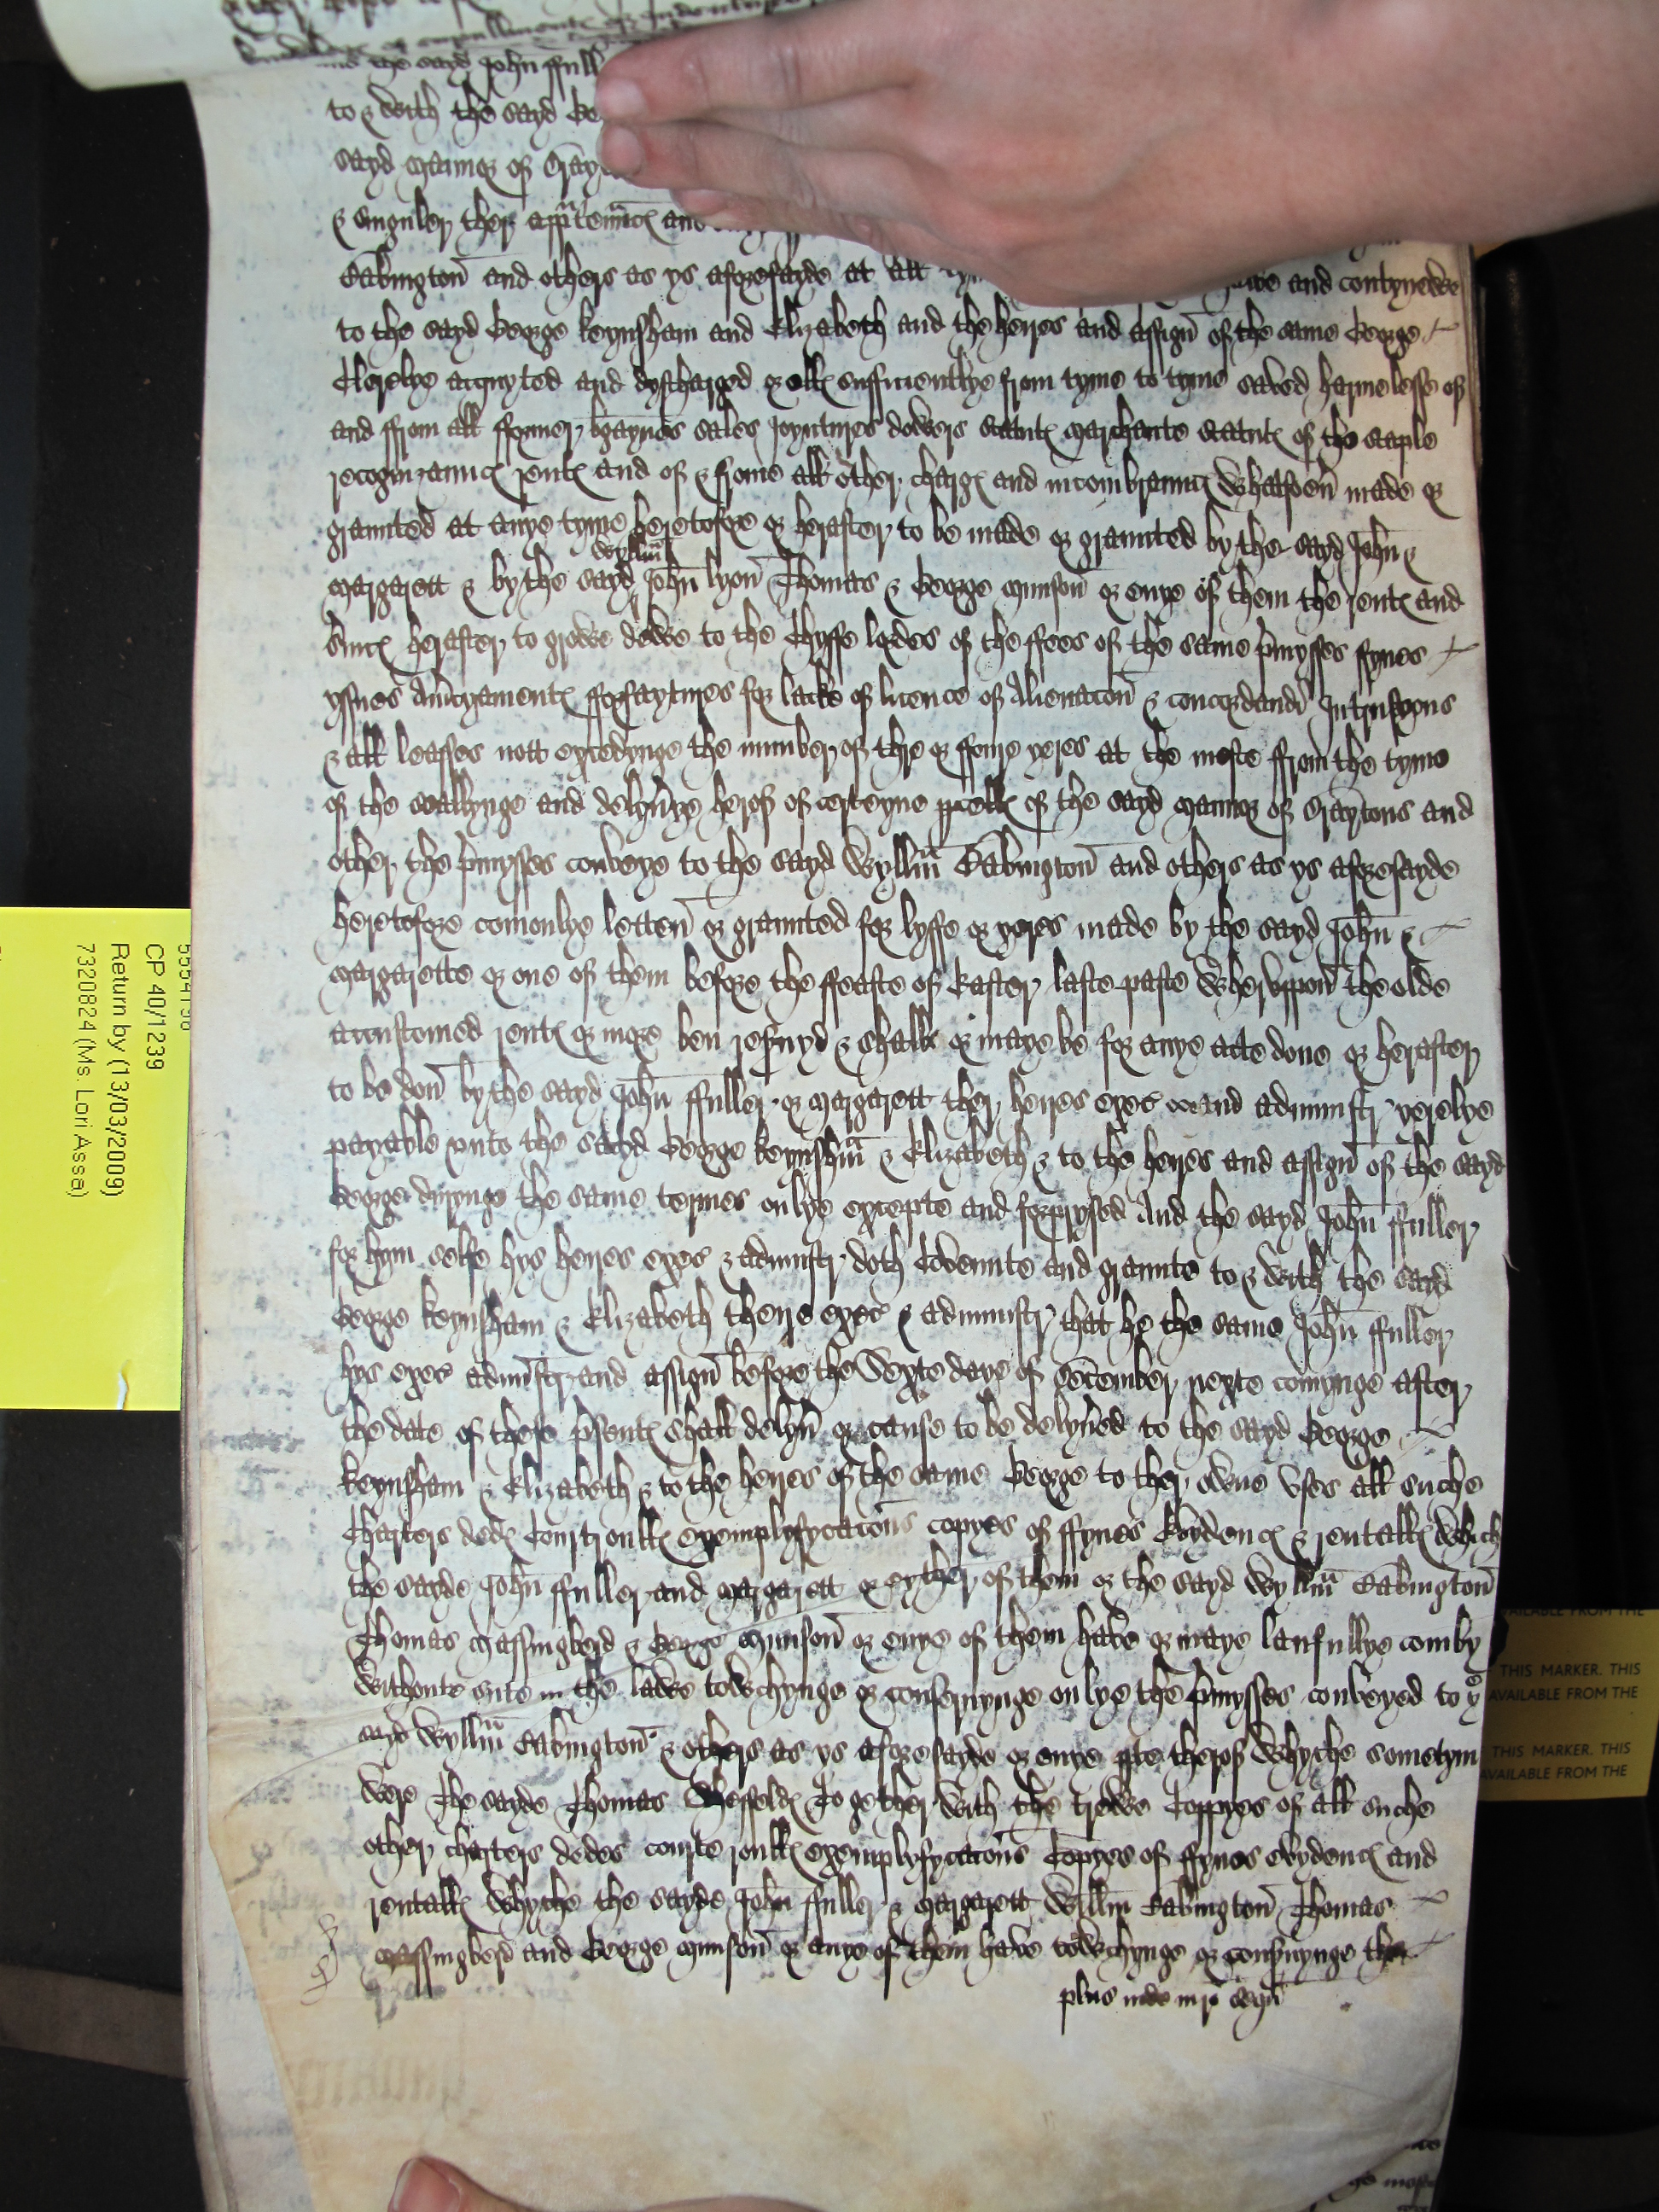 and the sayd John ffull
to & with the sayd Ge
sayd Mannor of
& singuler ther appͬtenͣncͤ and
Babington and others as ys aforesayde at all and contynewe
to the sayd George Keynsham and Elizabeth and the heyres and assignͫ of the same George
Clerelye acquyted and dyscharged or elles suffycientlye from tyme to tyme saved harmelesse of
and ffrom all fformer bargaynes sales Joyntures dowers Statutͤ marchante Statutͤ of the staple
recognizauncͤ rentͤ and of & frome all other chargͤ and incombrauncͤ whatsoev̄ made or
graunted at anye tyme heretofore or herafter to be made or graunted by the sayd John &
Margarett & by the sayd Wyllm̄ John lyon Thomas & George Munson or enye of them the rentͤ and
Svicͤ herafter to growe dewe to the Chyffe lordes of the ffees of the same p̄mysses ffynes
yssues Am̄cyamentͤ fforfaytures for lacke of licence of Alienacōn & concordand Intrusyons
& all leasses nott excedynge the number of thre or ffoure yeres at the moste ffrom the tyme
of the sealynge and delyv̄ye herof of certeyne p̄cellͤ of the sayd Mannor of and
other the p̄mysses conveye to the sayd Wyllm̄ Babington and others as ys aforesayde
heretofore comonlye letten or graunted for lyffe or yeres made by the sayd John &
Margarette or one of them before the ffeaste of Easter laste paste Wheruppon the olde
accustomed rentͤ or more ben res̄vyd & shalbe or maye be for anye acte done or herafter
to be don by the sayd John ffuller or Margarett ther heyres exec and administr yerelye
payable unto the sayd George Keynshm̄ & Elizabeth & to the heyres and assign̄ of the sayd
George duryng the same termes onlye excepte and forprysed And the sayd John ffuller
for hym selfe hys heyres exec & administr doth Covennte and graunte to & with the sayd
George Keynsham & Elizabeth theyre exec & administr that he the same John ffuller
hys exec administr and assign before the Sexte daye of December nexte comynge after
the date of these p̄sentͤ shall delyv̄ or cause to be delyv̄ed to the sayd George
Keynsham & Elizabeth & to the heyres of the same George to ther owne uses all suche
Charters dedͤ Courtrollͤ exemplyfycacōns copyes of ffynes Evydencͤ & rentallͤ which
the sayde John ffuller and Margarett or eyther of them or the sayd Wyllm̄ Babington
Thomas Massingberd & George Munson or enye of them have or maye laufullye comby
withoute sute in the lawe towchynge or consernynge onlye the p̄mysses conveyed to yͤ
sayd Wyllm̄ Babington & others as ys aforesayde or enye p̄te therof Whyche sometym
were The sayde Thomas To gether with the trewe Coppyes of all suche
other charters dedes courte rollͤ exemplyfycacōns Copyes of ffynes evydencͤ and
rentallͤ Whyche the sayde John ffuller & Margarett Willm̄ Babington Thomas
Massingberd and George Munson or anye of them have towchynge or cons̄nynge the
plus inde
5554198
CP 40/1239
Return by (13/03/2009)
7320824 (Ms. Lori Assa)
AVAILABLE FROM THE
THIS MARKER. THIS
AVAILABLE FROM THE
THIS MARKER. THIS
AVAILABLE FROM THE